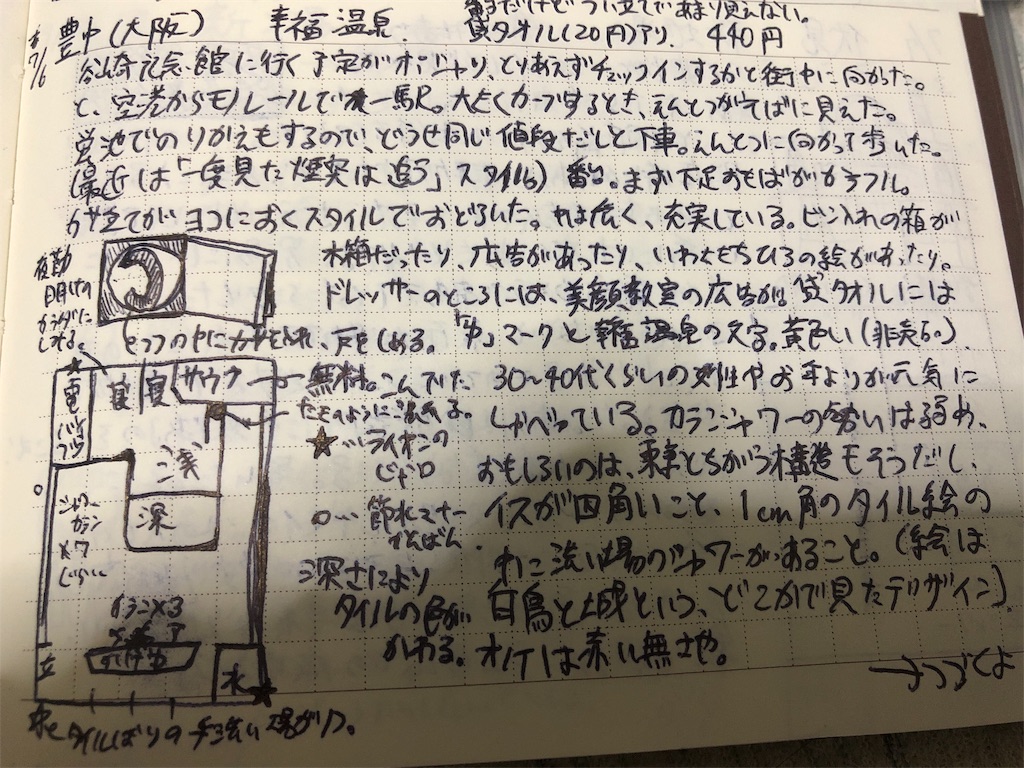 番台だけどつい立てであまり見えない。
7/6 豊中(大阪) 幸福温泉 貸タオル(20円)アリ. 440円
記念館に行く予定がオジャり、とりあえずチェックインするかと街中に向かった。
と、空港からモノレールで一駅。大きくカーブするとき、えんとつがそばに見えた。
蛍池でのりかえもするので、どうせ同じ値段だしと下車。えんとつに向かって歩いた。
(最近は「一度見た煙突は追う」スタイル) 番台。まず下足おもばががカラフル。
カサ立てがヨコにおくスタイルでおどろいた。中は広く、充実している。ビン入れの箱が
木箱だったり、広告があったり、いわさきちひろの絵があったり。
ドレッサーのところには、美顔教室の広告が。貸タオルには
「ゆ」マークと幸福温泉の文字。黄色い(非売品)
30〜40代くらいの女性やお年よりが元気に
しゃべっている。カランシャワーの勢いは弱め、
おもしろいのは、東京とちがう構造もそうだし、
イスが四角いこと、1cm角のタイル絵の
中に洗い場のシャワーがあること。(絵は
白鳥と城という、どこかで見たデザイン)
オケは赤い無地や。
→つづくよ
夜勤
明けの
カラダに
しみる。
の中にカサを入れ、戸をしめる。
電気
寝 寝 サウナ
無料。こんでいた
たきのように湯が出る。
★…ライオンの
じゃ口
浅
深
シャワー
カラン
×7
ぐらい
○…節水マナー
かんばん
深さにより
タイルの色が
かわる。
×3
立
水
タイルばりの手洗い場がアリ。